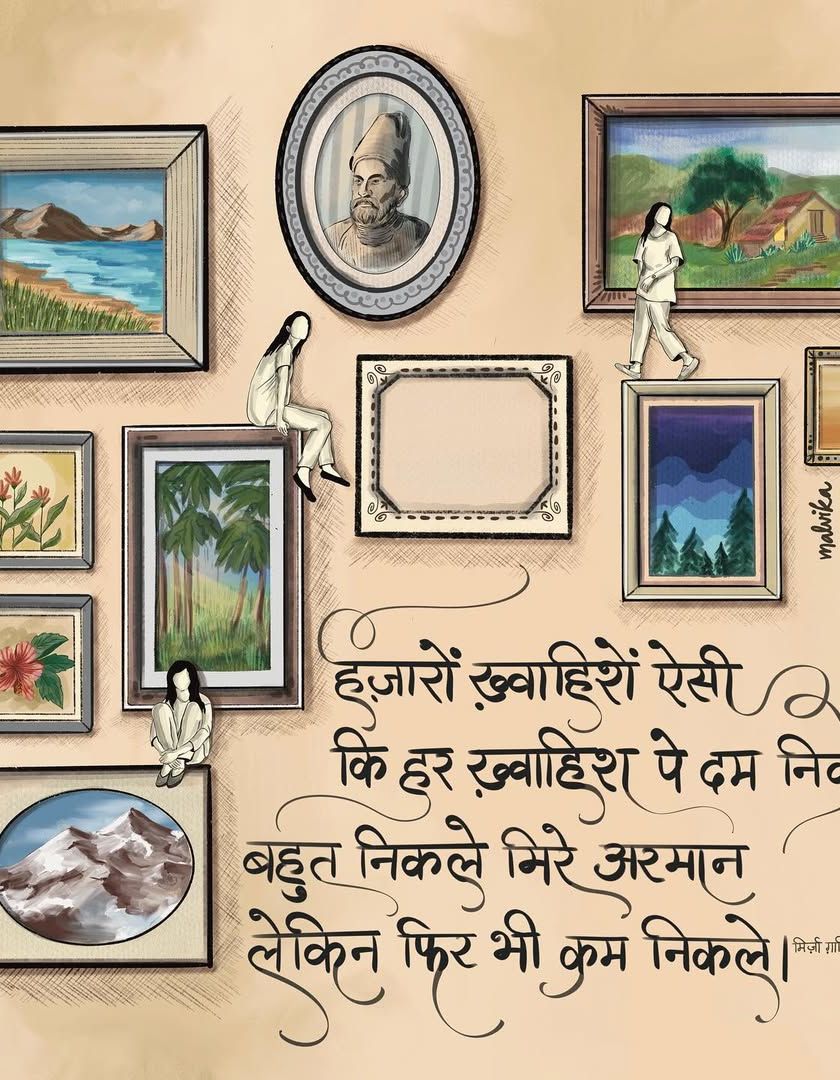 malvika
हज़ारों ख़्वाहिशें ऐसी
कि हर ख़्वाहिश पे दम
बहुत निकले मिरे अरमान
लेकिन फिर भी कम निकले।
मिर्ज़ा